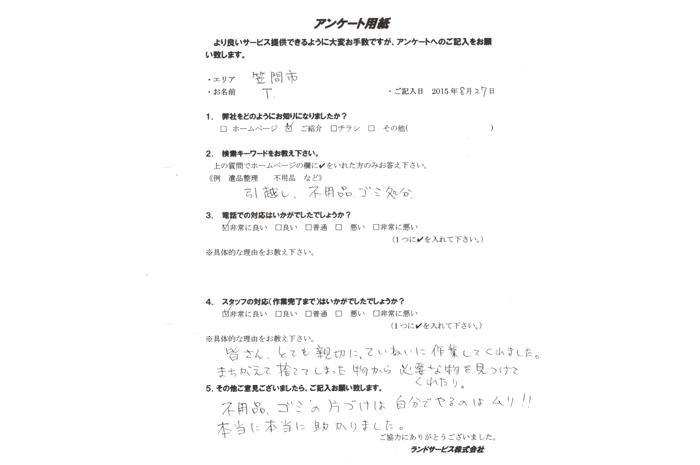 アンケート用紙
より良いサービス提供できるように大変お手数ですが、アンケートへのご記入をお願
い致します。
・エリア 笠間市
・お名前 T. ・ご記入日 2015年8月27日
1. 弊社をどのようにお知りになりましたか?
□ ホームページ ☑ ご紹介 □チラシ □ その他( )
2. 検索キーワードをお教え下さい。
上の質問でホームページの欄に✔をいれた方のみお答え下さい。
《例 遺品整理 不用品 など》
引越し、不用品、ゴミ処分、
3. 電話での対応はいかがでしたでしょうか?
☑非常に良い □良い □普通 □ 悪い □非常に悪い
(1つに✔を入れて下さい。)
※具体的な理由をお教え下さい。
4. スタッフの対応(作業完了まで)はいかがでしたでしょうか?
☑非常に良い □良い □普通 □ 悪い □非常に悪い
(1つに✔を入れて下さい。)
※具体的な理由をお教え下さい。
皆さん、とても親切に、ていねいに作業してくれました。
まちがえて捨ててしまった物から必要な物を見つけて
くれたり。
5. その他ご意見ございましたら、ご記入お願い致します。
不用品、ゴミの片づけは自分でやるのはムリ!!
本当に本当に助かりました。
ご協力にありがとうございました。
ランドサービス株式会社